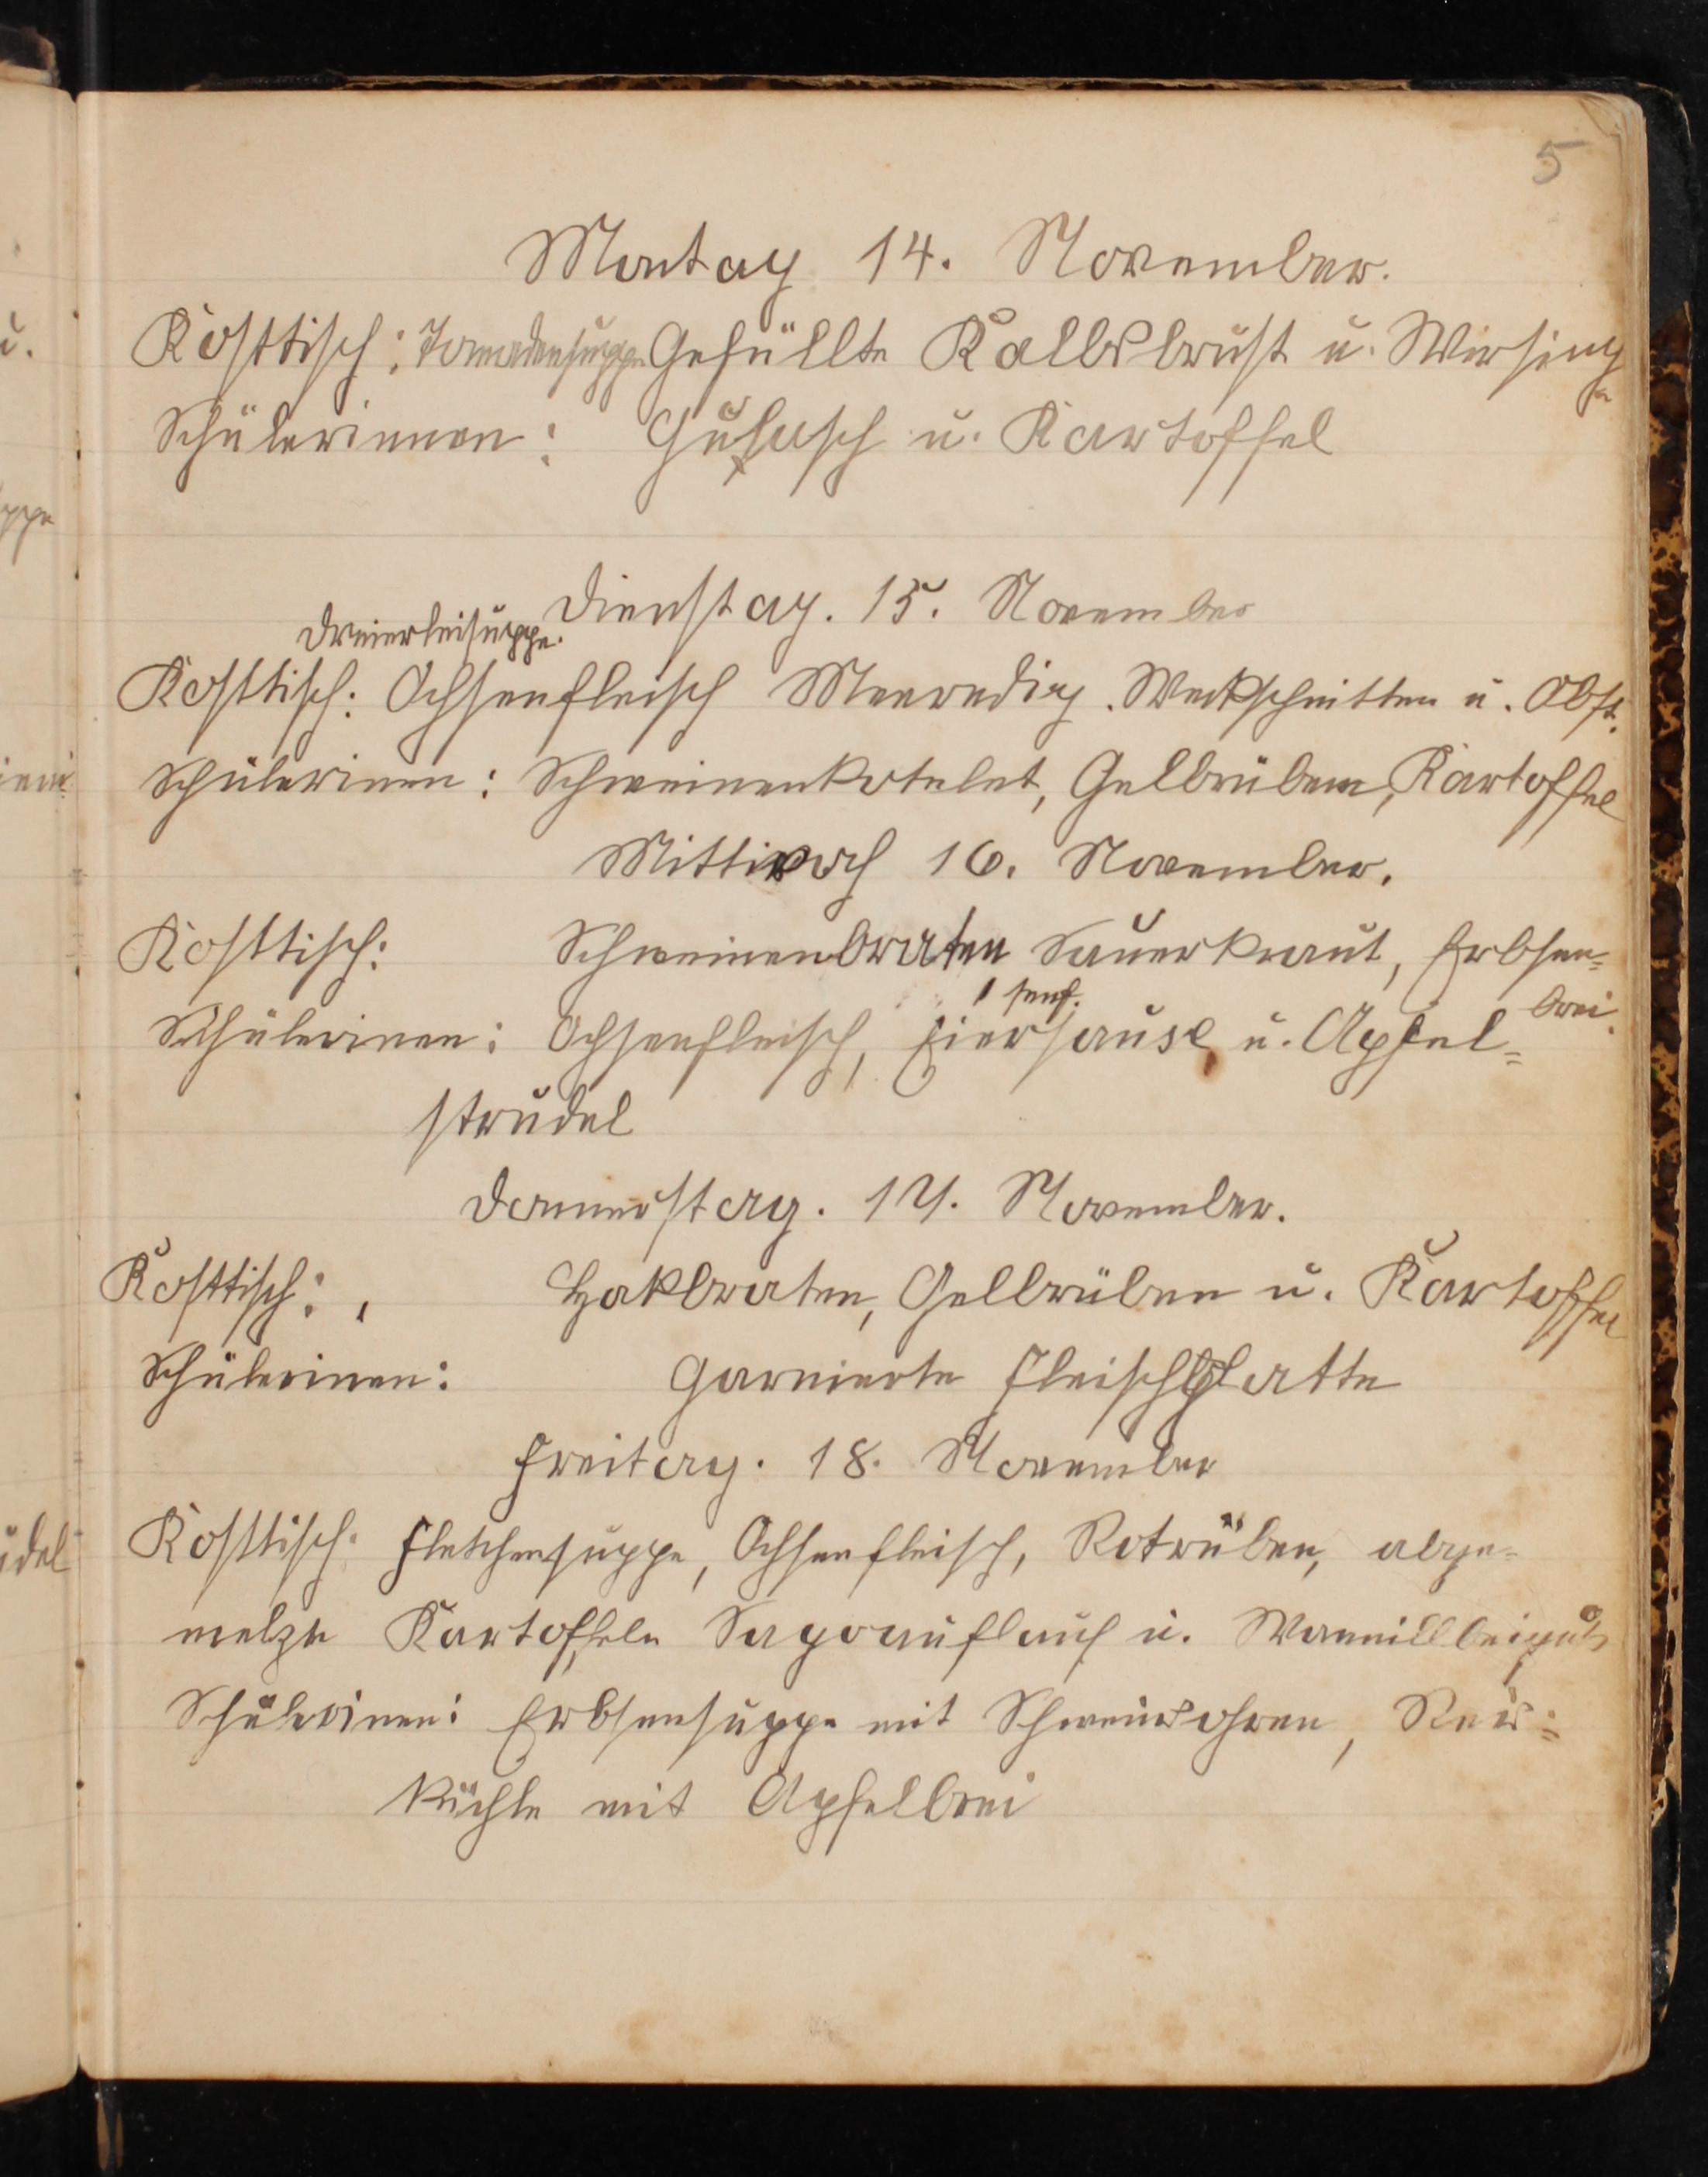 5
Montag 14. November.
Kosttisch: Tomadensuppe Gefüllte Kalbsbrust u. Wirsing
Schülerinnen: Gulasch u. Kartoffel
Dienstag. 15. November
Dreierleisuppe.
Kosttisch: Ochsenfleisch Meeredig. Weckschnitten u. Obst.
Schülerinen: Schweinenkotelet, Gelbrüben, Kartoffel
Mittwoch 16. November.
Kosttisch: Schweinenbraten Sauerkraut, Erbsen=
brei.
senf.
Schülerinen: Ochsenfleisch, Eiersause u. Apfel=
strudel
Donnerstag. 17. November.
Kosttisch: Hakbraten, Gelbrüben u. Kartoffel
Schülerinen: Garnierte Fleischplatte
Freitag. 18. November
Kosttisch. Fletchensuppe, Ochsenfleisch, Rotrüben, abge=
melzte Kartoffeln Sagoauflauf u.
Schülerinen: Erbsensuppe mit Schweinsohren, Reis=
küchle mit Apfelbrei
u.
uppe
udel